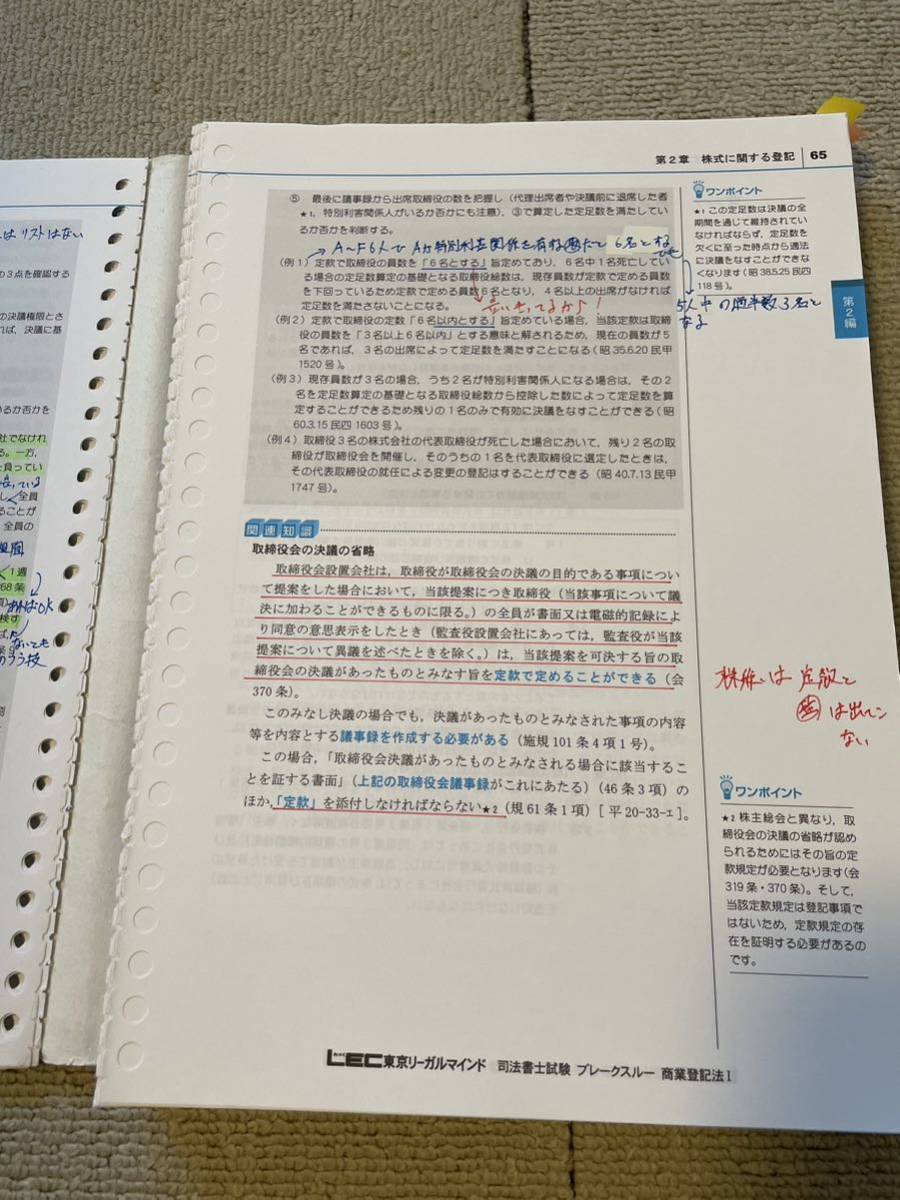 はリストはない
の3点を確認する
の決議権限とさ
れば、決議に基
いるか否かを
社でなけれ
る。一方,
と負ってい
全員
ることが
全員の
1週
68条
あればOK
検す
ないても
のう技
第2章 株式に関する登記 65
⑤ 最後に議事録から出席取締役の数を把握し（代理出席者や決議前に退席した者
★1，特別利害関係人がいるか否かにも注意），③で算定した定足数を満たしてい
るか否かを判断する。
A〜F6人で Aが特別利害関係を有する 6名とする
（例1）定款で取締役の員数を「6名とする」旨定めており，6名中1名死亡してい
る場合の定足数算定の基礎となる取締役総数は，現存員数が定款で定める員数
を下回っているため定款で定める員数6名となり，4名以上の出席がなければ
定足数を満たさないことになる。
言いきってるから！
（例2）定款で取締役の定数「6名以内とする」旨定めている場合，当該定款は取締
役の員数を「3名以上6名以内」とする意味と解されるため，現在の員数が5
名であれば，3名の出席によって定足数を満たすことになる（昭35.6.20民甲
1520号）。
（例3）現存員数が3名の場合，うち2名が特別利害関係人になる場合は，その2
名を定足数算定の基礎となる取締役総数から控除した数によって定足数を算
定することができるため残りの1名のみで有効に決議をなすことができる（昭
60.3.15民四1603号）。
（例4）取締役3名の株式会社の代表取締役が死亡した場合において，残り2名の取
締役が取締役会を開催し，そのうちの1名を代表取締役に選定したときは，
その代表取締役の就任による変更の登記はすることができる（昭40.7.13民甲
1747号）。
ワンポイント
★1 この定足数は決議の全
期間を通じて維持されてい
なければならず，定足数を
欠くに至った時点から適法
に決議をなすことができな
くなります（昭38.5.25民四
118号）。
5人中の過半数3名と
なる
第2編
関連知識
取締役会の決議の省略
取締役会設置会社は，取締役が取締役会の決議の目的である事項につい
て提案をした場合において，当該提案につき取締役（当該事項について議
決に加わることができるものに限る。）の全員が書面又は電磁的記録によ
り同意の意思表示をしたとき（監査役設置会社にあっては，監査役が当該
提案について異議を述べたときを除く。）は，当該提案を可決する旨の取
締役会の決議があったものとみなす旨を定款で定めることができる（会
370条）。
このみなし決議の場合でも，決議があったものとみなされた事項の内容
等を内容とする議事録を作成する必要がある（施規101条4項1号）。
この場合，「取締役会決議があったものとみなされる場合に該当するこ
とを証する書面」（上記の取締役会議事録がこれにあたる）（46条3項）の
ほか，「定款」を添付しなければならない★2（規61条1項）［平20-33-エ］。
は定款と
は出てこ
ない
ワンポイント
★2 株主総会と異なり，取
締役会の決議の省略が認め
られるためにはその旨の定
款規定が必要となります（会
319条・370条）。そして，
当該定款規定は登記事項で
はないため，定款規定の存
在を証明する必要があるの
です。
LEC東京リーガルマインド 司法書士試験 ブレークスルー 商業登記法Ⅰ